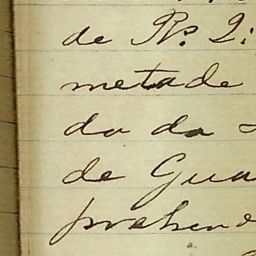 de Rs. 2:
metade
da da
de Gua
prehen